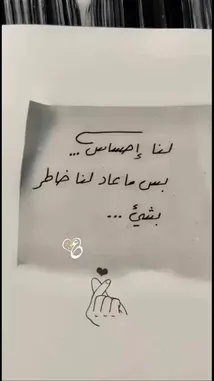 لنا إحساس ...
بس ما عاد لنا خاطر
بشيئ ...